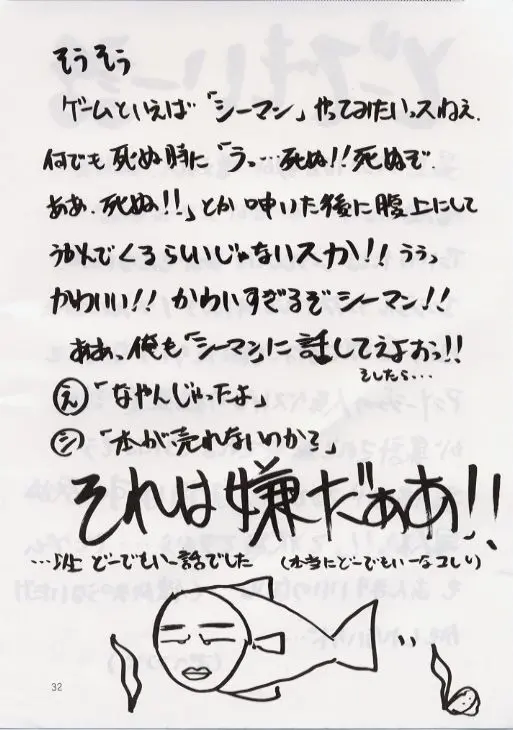 そうそう
ゲームといえば「シーマン」やってみたいっスねえ.
何でも死ぬ時に「うっ…死ぬ!!死ぬぞ.
ああ.死ぬ!!」とか呻いた後に腹上にして
うかんでくるらしいじゃないスか!!ううっ
かわいい!!かわいすぎるぞシーマン!!
ああっ俺も「シーマン」に話してえよおっ!!
そしたら…
え「なやんじゃったよ。」
シ「本が売れないのか?」
それは嫌だぁあ!!
…以上どーでもいー話でした(本当にどーでもいーなコレ)
32